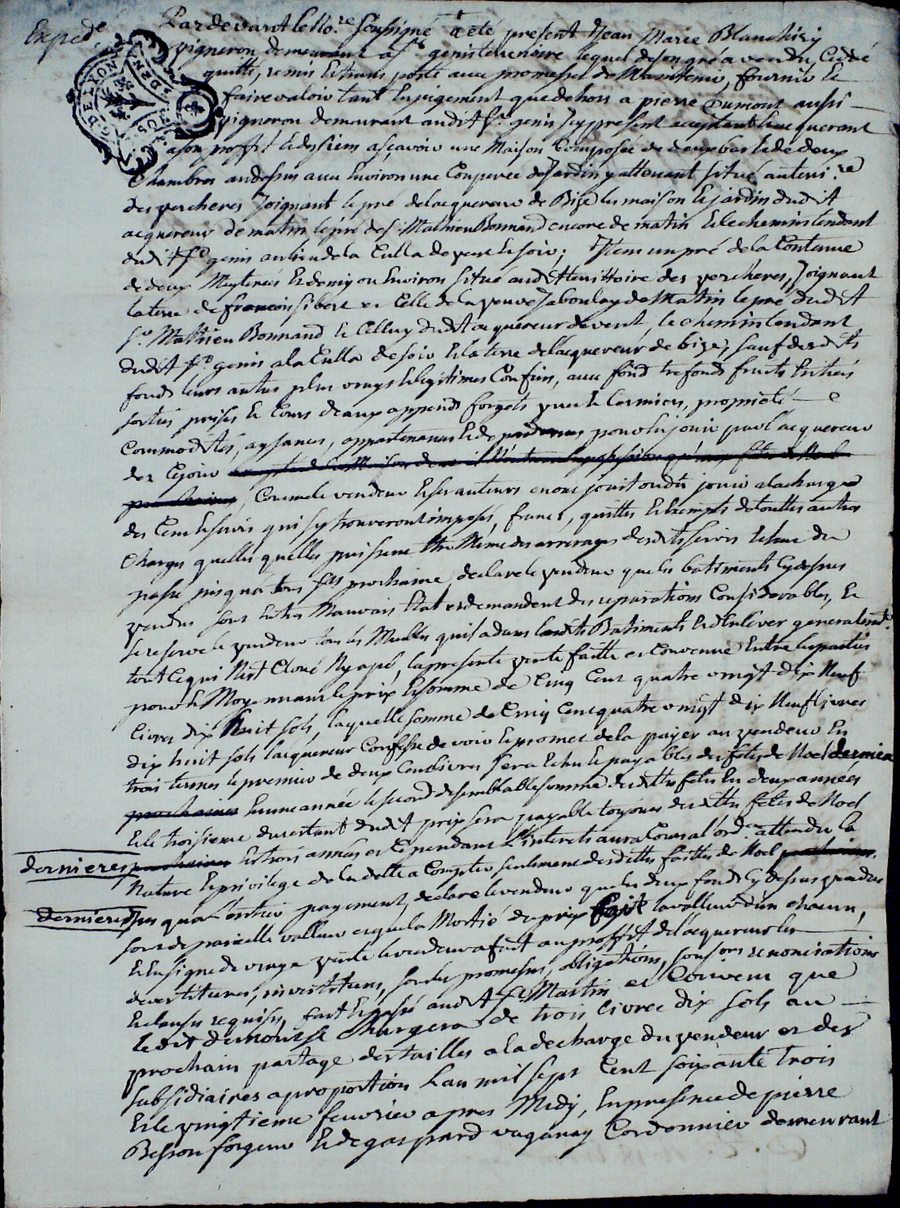 Expedé
Pardevant le No.re soussigné a eté present Jean Marie Blanchiry
vigneron demeurant a St genis terrenoire lequel de son gré a vendu, Ceddé
quitté, remis et transporté aux promesses de Maintenir, fournir et
faire valoir tant en jugement que dehors a pierre Dumont aussi
vigneron demeurant audit St genis cy present acceptant et acquerant
a son proffit et des siens asçavoir une Maison Composée de deux bas et de deux
Chambres au dessus avec Environ une Couperée de Jardin y attenant situé au terri.re
des percheres Joignant le pré de lacquereur de Bize les maison et jardin dudit
acquereur de matin le pré de Sr Mathieu Bonnand encore de matin et le chemin tendant
dudit St genis au lieu de la Culla de vent et soir; Item un pré de la Contenue
de deux Meyterés et demy ou Environ situé audit territoire des percheres, Joignant
la terre de francois sibert et Celle de la veuve Jaboulay de Matin le pré dudit
Sr Mathieu Bonnand et Celluy dudit acquereur de vent, le chemin tendant
dudit St genis a la Culla de soir et la terre de lacquereur de bize; sauf desdits
fonds leurs autres plus vrays et legitimes Confins, avec fond trefonds fruits Entrées
sorties prises et Cours deaux appends proprieté
Commodités, aysances, appartenances et dependances pour en jouir par l'acquereur
des Ce jour
Comme le vendeur et ses auteurs en ont jouit ou dû jouir a la charge
des Cens et servis qui s'y trouveront imposés, francs, quittes et Exempts de touttes autres
charges quelles quelles puissent être Même des arrerages desdits servis et du
passé jusqu'a ces fetes prochaine, declare le vendeur que les batiments cy dessus
vendus sont en tres Mauvais Etat et demandent des reparations Considerables, et
se reserve le vendeur tous les Meubles qu'il a dans lesdits Batiments et d'Enlever generalemt
tout Ce qui N'est Cloué Ny apé, la presente vente faitte et Convenue Entre les parties
pour et Moyennant le prix et somme de Cinq Cent quatre vingt dix Neuf
Livres dix huit sols, laquelle somme de Cinq Cent quatre vingt dix Neuf Livres
dix huit sols lacquereur Confesse devoir et promet de la payer au vendeur En
trois termes le premier de deux Cent livres sera Echu et payable des fetes de Noel dernier
En une année le second de semblable somme desdittes fetes En deux années
Et le troisieme du restant dudit prix sera payable toujours desdittes fetes de Noel
dernieres En trois années et Cependant l'interets aura Cours a l'ord.re attendu la
Nature et privilege de la dette a Compter seulement desdittes faittes de Noel
dernieres jusqu'a l'entier payement, declare le vendeur que les deux fonds Cy dessus vendus
sont de pareille valleur et que la Moitié du prix fait la valleur d'un chacun,
Et En signe de vraye vente le vendeur a fait au proffit de lacquereur les
devestitures, investitures, sous les promesses, obligations, soumissions renonciations
Et clauses requises, fait Et passé audit St Martin et Convenu que
ledit dumont se Chargera de trois livres dix sols au
prochain partage des tailles a la decharge du vendeur et des
subsidiaires a proportion L'an mil sept Cent soixante trois
Et le vingtieme fevrier apres Midy, En presence de pierre
Besson forgeur Et de gaspard vaganay Cordonnier demeurant